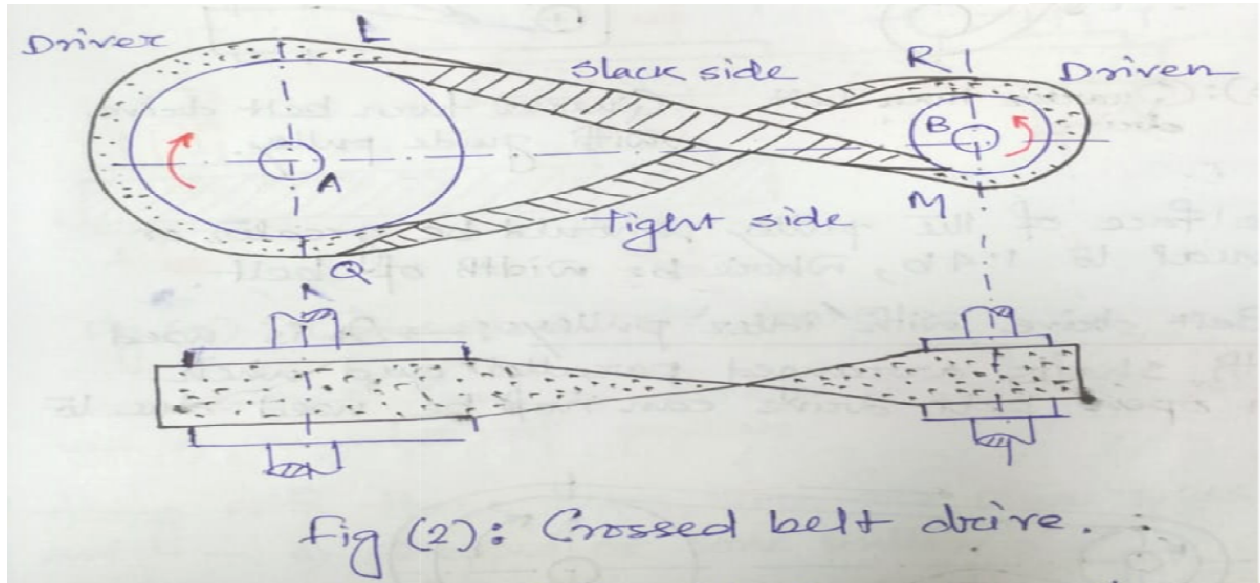 Driver
L
Slack side
R
Driven
B
A
M
Tight side
Q
Fig (2): Crossed belt drive.